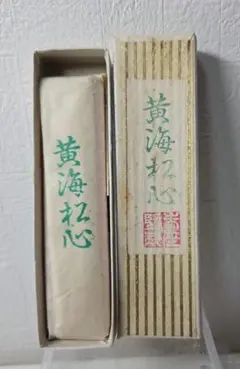 黄海松心
黄海松心